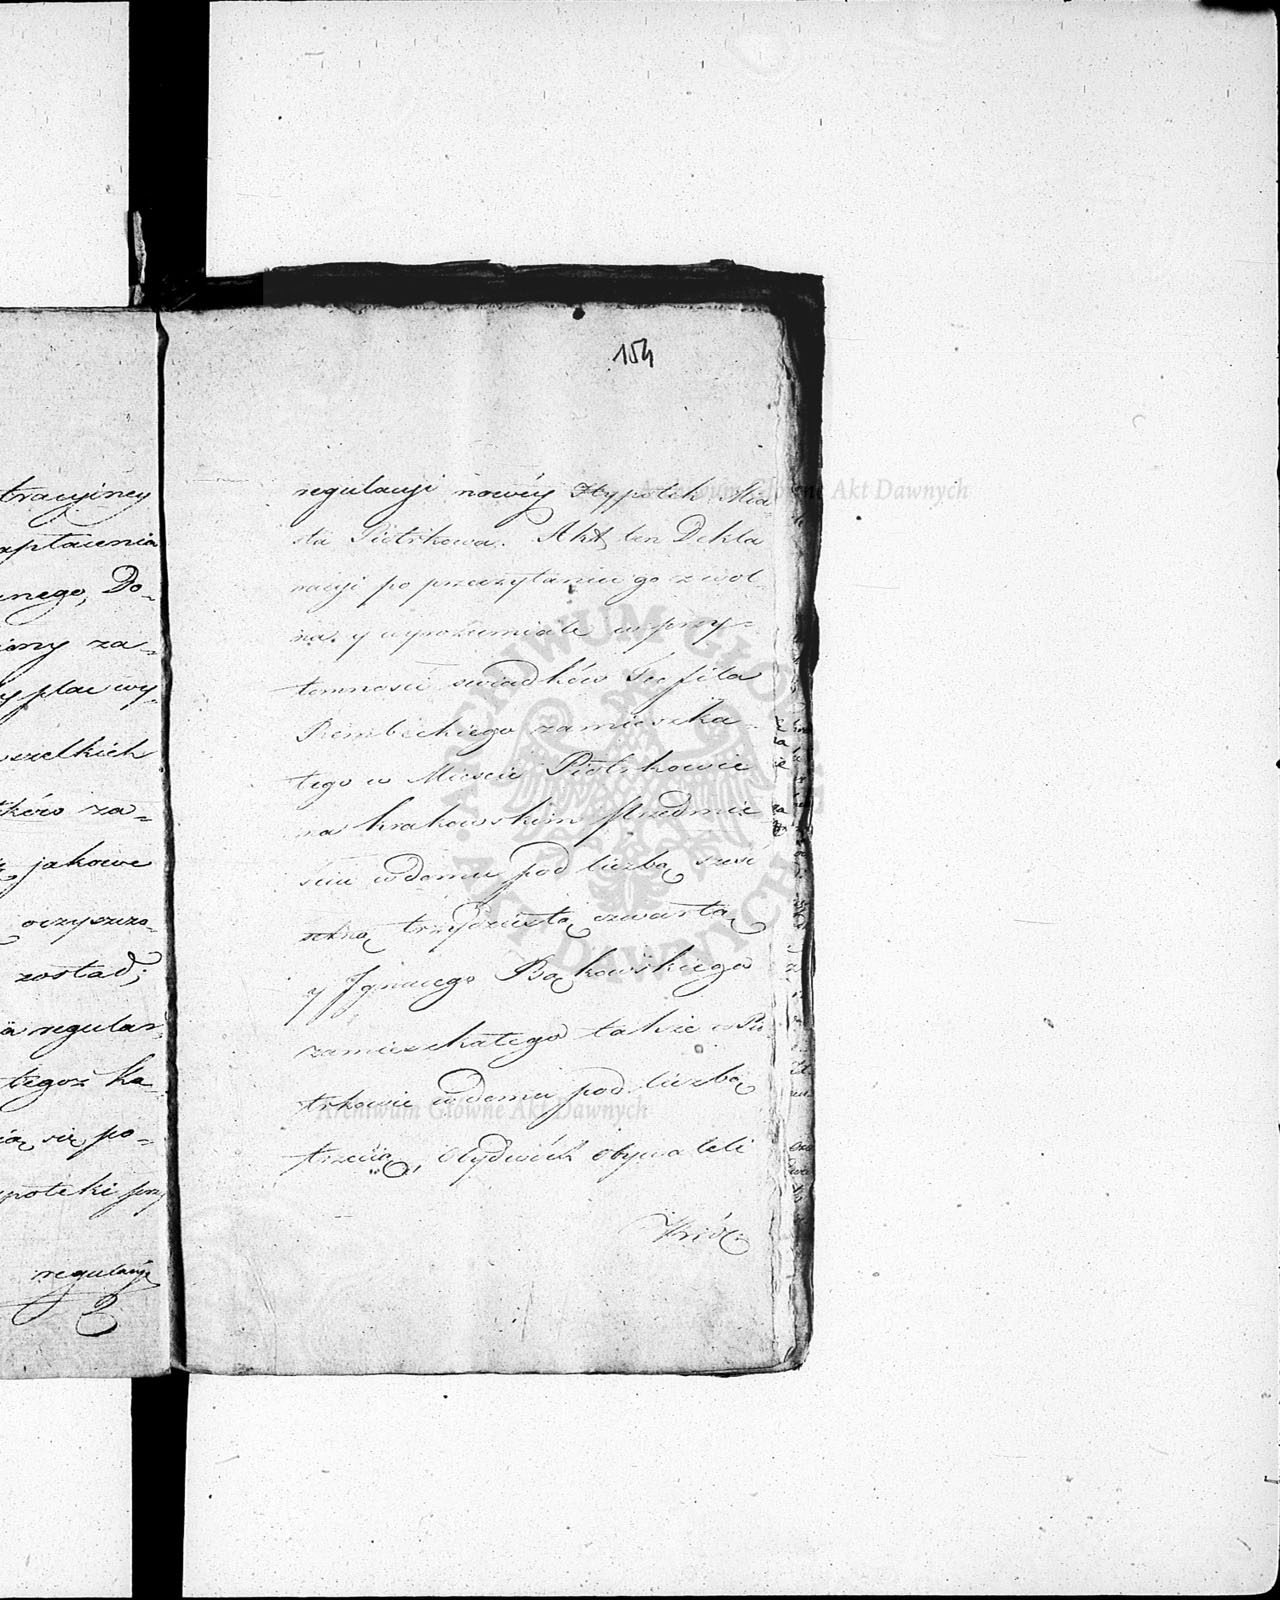 tracyiney
zpłacenia
nego, Do-
iony za-
y plac wy-
wszelkich
ków za-
jakowe
oczyszczo-
zostać;
a regular-
tegoż ka
ią się po-
ypoteki przy
regulacyi
154
regulacyi nowéy Hypotek Mia
sta Piotrkowa. Akt ten Dekla
racyi po przeczytaniu go z wol
na y wyrozumiale w przy-
tomności swiadków Teofila
Rembeckiego zamieszka-
łego w Miescie Piotrkowie
na krakowskim Przedmie
sciu w domu pod liczbą sześć
setną trzydziestą czwartą
y Jgnacego Bąkowskiego
zamieszkałego także w Pio
trkowie w domu pod liczbą
trzecią, Obydwóch obywateli
Któ
Archiwum Główne Akt Dawnych
ARCHIWUM GŁÓWNE AKT DAWNYCH
Archiwum Główne Akt Dawnych